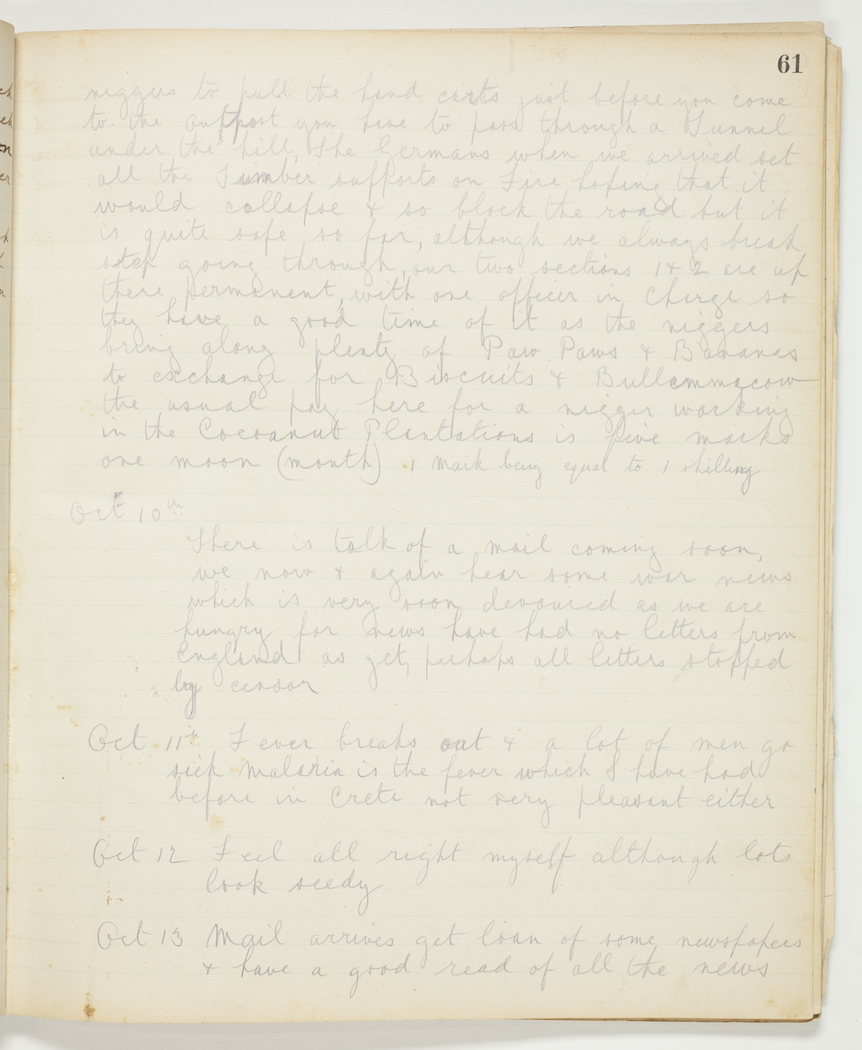 61
niggers to pull the hand carts just before you come
to the outpost you have to pass through a Tunnel
under the hill, The Germans when we arrived set
all the Timber supports on Fire hoping that it
would collapse & so block the road but it
is quite safe so far, although we always break
step going through, our two sections 1 & 2 are up
there permanent, with one officer in charge so
they have a good time of it as the niggers
bring along plenty of Paw Paws & Bananas
to exchange for Biscuits & Bullammacow
the usual pay here for a nigger working
in the Cocoanut Plantations is five marks
one moon (month) 1 Mark being equal to 1 shilling
Oct 10th
There is talk of a mail coming soon,
we now & again hear some war news
which is very soon devoured as we are
hungry for news have had no letters from
England as yet, perhaps all letters stopped
by censor
Oct 11th Fever breaks out & a lot of men go
sick Malaria is the fever which I have had
before in Crete not very pleasant either
Oct 12 Feel all right myself although lots
look seedy
Oct 13 Mail arrives get loan of some newspapers
& have a good read of all the news